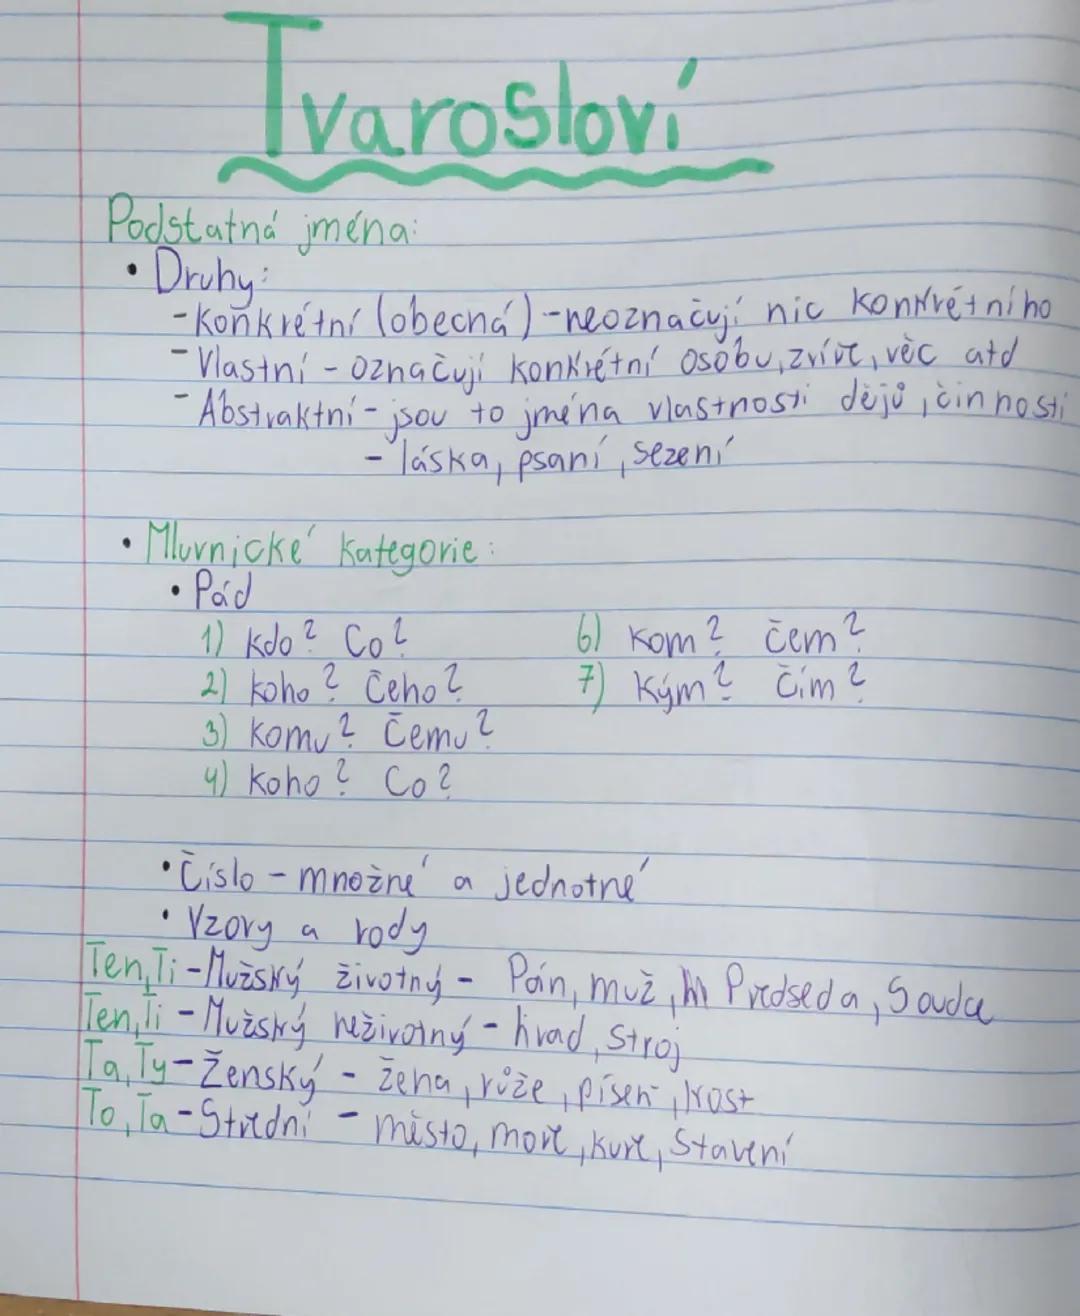 Tvarosloví
Podstatná jména:
• Druhy:
- Konkrétní (obecná) - neoznačují nic konkrétního
- Vlastní - označují konkrétní osobu, zvíře, věc atd
- Abstraktní - jsou to jména vlastnosti dějů, činností
- láska, psaní, sezení
• Mluvnické kategorie:
• Pád
1) Kdo? Co?
2) Koho? Čeho?
3) Komu? Čemu?
4) Koho? Co?
6) Kom? Čem?
7) Kým? Čím?
• Číslo - množné a jednotné
• Vzory a rody
Ten, Ti - Mužský životný - Pán, muž, Předseda, Soudce
Ten, Ti - Mužský neživotný - hrad, Stroj
Ta, Ty - Ženský - žena, růže, píseň, kost
To, Ta - Střední - město, moře, kuře, Stavení